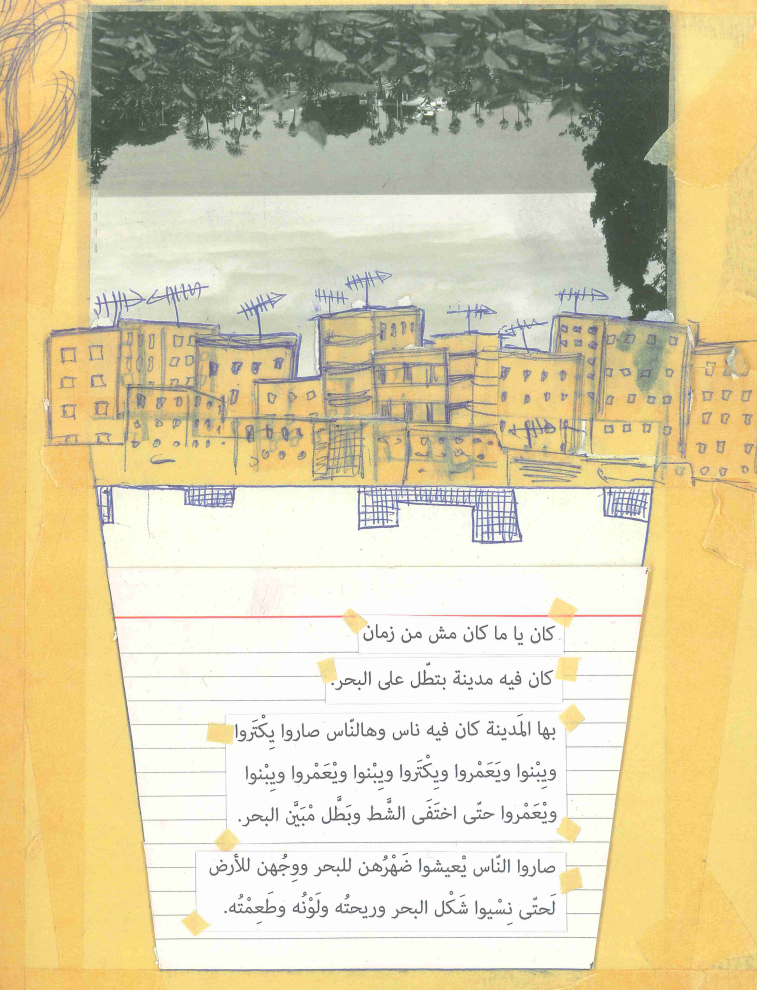 كان يا ما كان مش من زمان
كان فيه مدينة بتطّل على البحر.
بها المَدينة كان فيه ناس وهالنّاس صاروا يِكْتَروا
ويِبْنوا ويَعَمْروا ويِكْتَروا ويِبْنوا ويْعَمْروا ويِبْنوا
ويْعَمْروا حتّى اختَفَى الشَّط وبَطَّل مْبَيَّن البحر.
صاروا النّاس يْعيشوا ضَهْرُهن للبحر ووِجُهن للأرض
لَحتّى نِسْيوا شَكْل البحر وريحتُه ولَوْنُه وطَعِمْتُه.